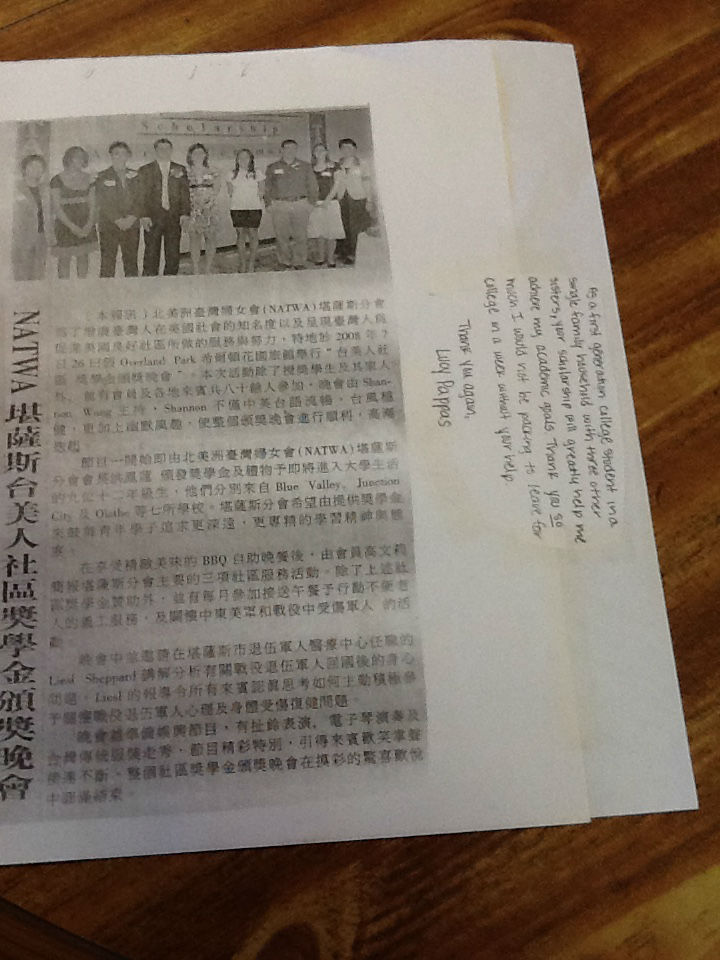 Scholarship
NATWA 堪薩斯台美人社區獎學金頒獎晚會
本報訊）北美洲臺灣婦女會(NATWA)堪薩斯分會
為了增廣臺灣人在美國社會的知名度以及呈現臺灣人員
促進美國良好社區所做的服務與努力，特地於 2008 年 7
月 26 日領 Overland Park 希爾頓花園旅館舉行“台美人社
區 獎學金頒獎晚會”。本次活動除了授獎學生及其家人
外，並有會員及各地來賓共八十餘人參加。晚會由 Shan-
non Wang 主持，Shannon 不僅中英台語流暢，台風穩
健，更加上幽默風趣，使整個頒獎晚會進行順利，高潮
迭起
節目一開始即由北美洲臺灣婦女會(NATWA)堪薩斯
分會會長洪鳳蓮 頒發獎學金及禮物予即將進入大學生活
的九位十二年級生，他們分別來自 Blue Valley, Junction
City 及 Olathe 等七所學校。堪薩斯分會希望由提供獎學金
來鼓勵青年學子追求更深遠，更專精的學習精神與態
度。
在享受精緻美味的 BBQ 自助晚餐後，由會員高文
簡報堪薩斯分會主要的三項社區服務活動。除了上述社
區獎學金贊助外，並有每月參加接送午餐予行動不便老
人的義工服務，及關懷中東美軍和戰役中受傷軍人 的活
動
晚會中並邀請在堪薩斯市退伍軍人醫療中心任職的
Liesl Sheppard 講解分析有關戰役退伍軍人回國後的身心
問題。Liesl 的報導令所有來賓認真思考如何主動積極參
予關懷戰役退伍軍人心理及身體受傷復健問題。
晚會
節目，有扯鈴表演，電子琴演奏及
台灣傳統服裝走秀，節目精彩特別，引得來賓歡笑掌聲
連連不斷。整個社區獎學金頒獎晚會在摸彩的驚喜歡悅
中圓滿結束。
as a first generation college student in a
single family household with three other
sisters, your scholarship will greatly help me
achieve my academic goals. Thank you so
much I would not be packing to leave for
college in a week without your help.
Thank you again,
Lucy Pappas